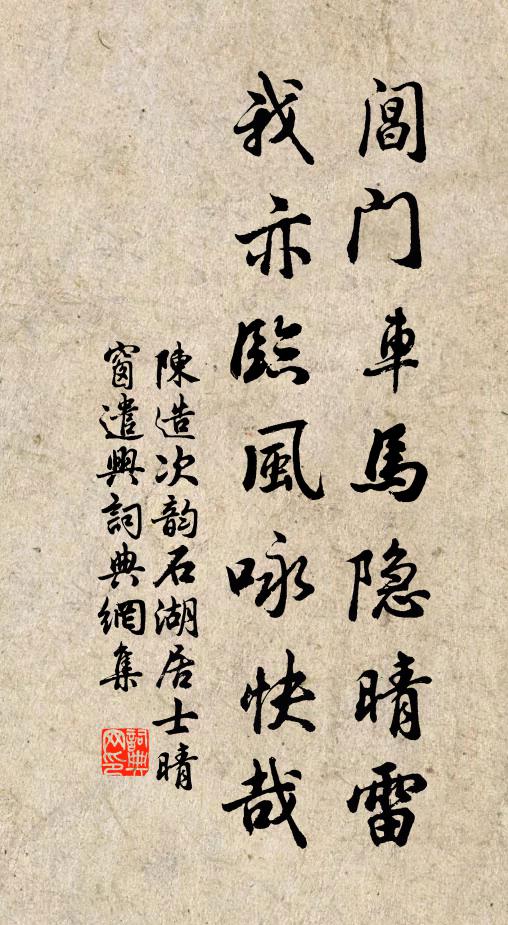 閶門車馬隐晴雷
我亦臨風咏快哉
陳造次韵石湖居士晴
窗遣興詞典網集
詞典
网印